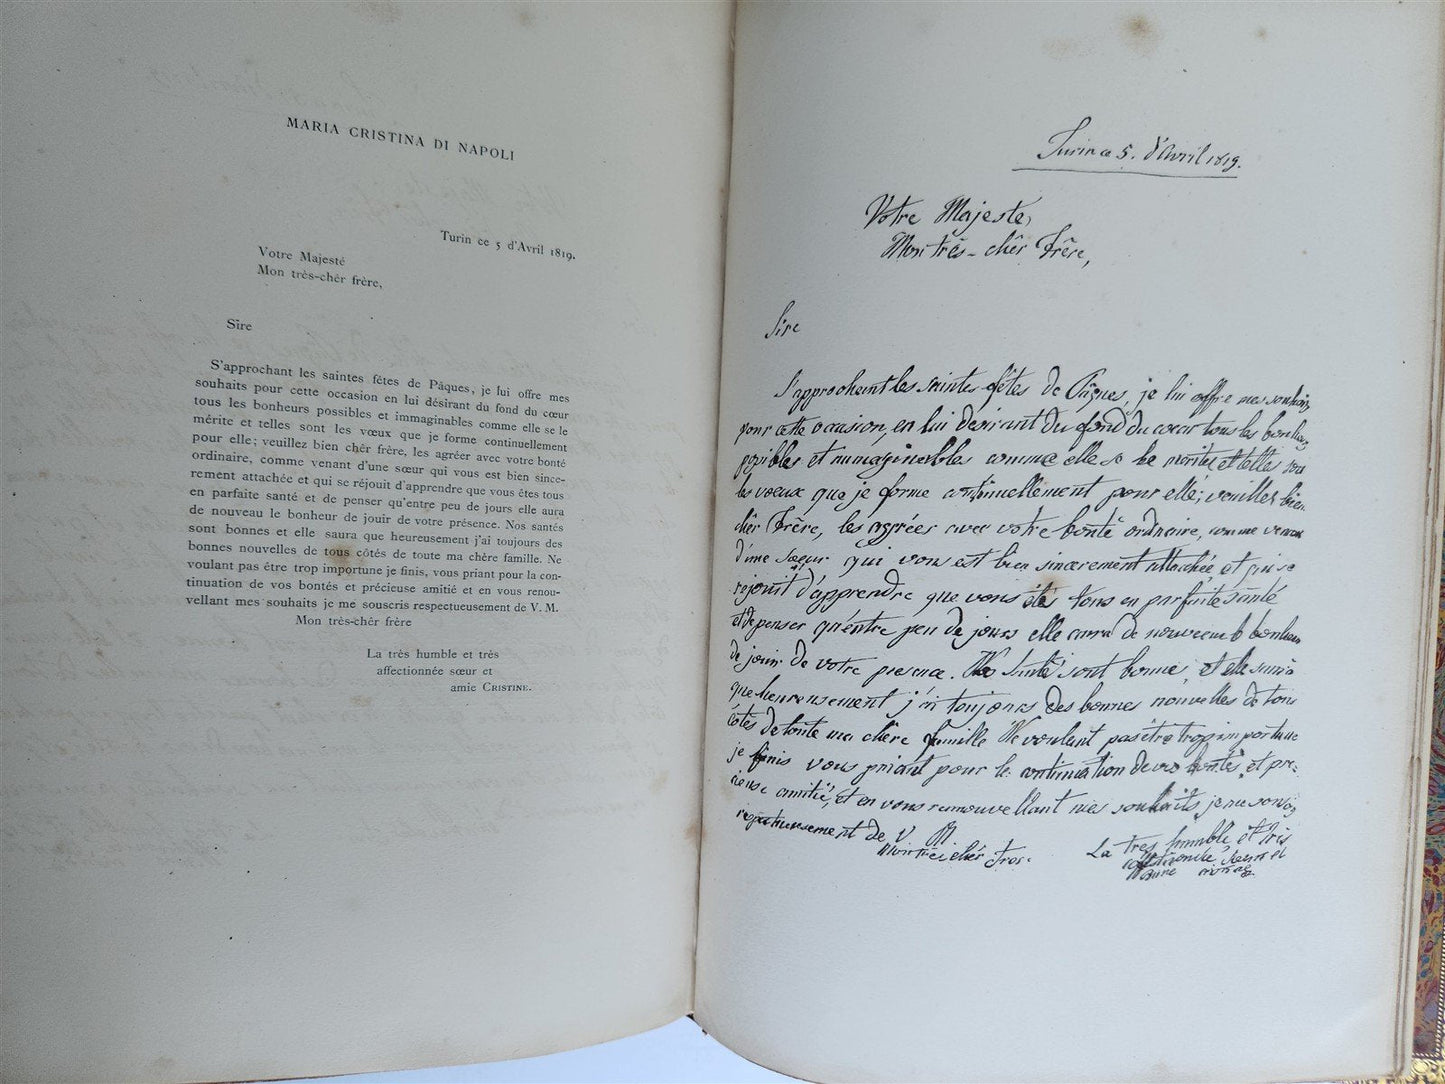 MARIA CRISTINA DI NAPOLI
Turin ce 5 d'Avril 1819.
Votre Majesté
Mon très-chêr frère,
Sire
S'approchant les saintes fêtes de Pâques, je lui offre mes
souhaits pour cette occasion en lui désirant du fond du cœur
tous les bonheurs possibles et immaginables comme elle se le
mérite et telles sont les vœux que je forme continuellement
pour elle; veuillez bien chêr frère, les agréer avec votre bonté
ordinaire, comme venant d'une sœur qui vous est bien since-
rement attachée et qui se réjouit d'apprendre que vous êtes tous
en parfaite santé et de penser qu'entre peu de jours elle aura
de nouveau le bonheur de jouir de votre présence. Nos santés
sont bonnes et elle saura que heureusement j'ai toujours des
bonnes nouvelles de tous côtés de toute ma chère famille. Ne
voulant pas être trop importune je finis, vous priant pour la con-
tinuation de vos bontés et précieuse amitié et en vous renou-
vellant mes souhaits je me souscris respectueusement de V. M.
Mon très-chêr frère
La très humble et très
affectionnée sœur et
amie CRISTINE.
Turin ce 5. d'Avril 1819.
Votre Majesté,
Mon très-chêr Frêre,
Sire
S'approchant les saintes fêtes de Pâques, je lui offre mes souhaits
pour cette occasion, en lui desirant du fond du cœur tous les bonheurs
possibles et immaginables comme elle se le mérite et telles sont
les vœux que je forme continuellement pour elle; veuillez bien
chêr Frère, les agréer avec votre bonté ordinaire, comme venant
d'une sœur qui vous est bien sincerement attachée et qui se
réjouit d'apprendre que vous êtes tous en parfaite santé
et de penser qu'entre peu de jours elle aura de nouveau le bonheur
de jouir de votre presence. Nos santés sont bonnes, et elle saura
que heureusement j'ai toujours des bonnes nouvelles de tous
côtés de toute ma chère famille Ne voulant pas être trop importune
je finis vous priant pour la continuation de vos bontés, et pre-
cieuse amitié, et en vous renouvellant mes souhaits, je me
respectueusement de V M
Mon très chêr Frere
La très humble et très